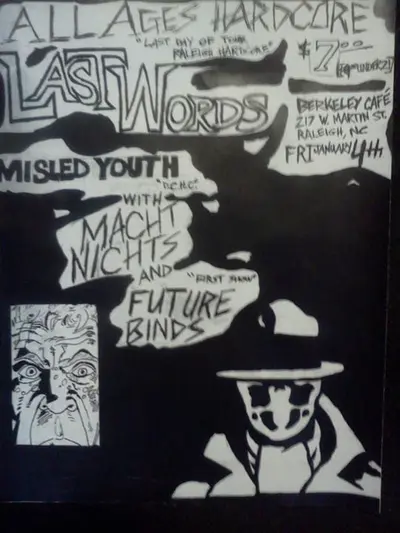 ALL AGES HARDCORE
"LAST DAY OF TOUR
RALEIGH HARDCORE"
$7.00
LAST WORDS
BERKELEY CAFÉ
217 W. MARTIN ST.
RALEIGH, NC
FRI JANUARY 4TH
MISLED YOUTH
"D.C.H.C."
WITH
MACHT
NICHTS
AND
"FIRST SHOW"
FUTURE
BINDS